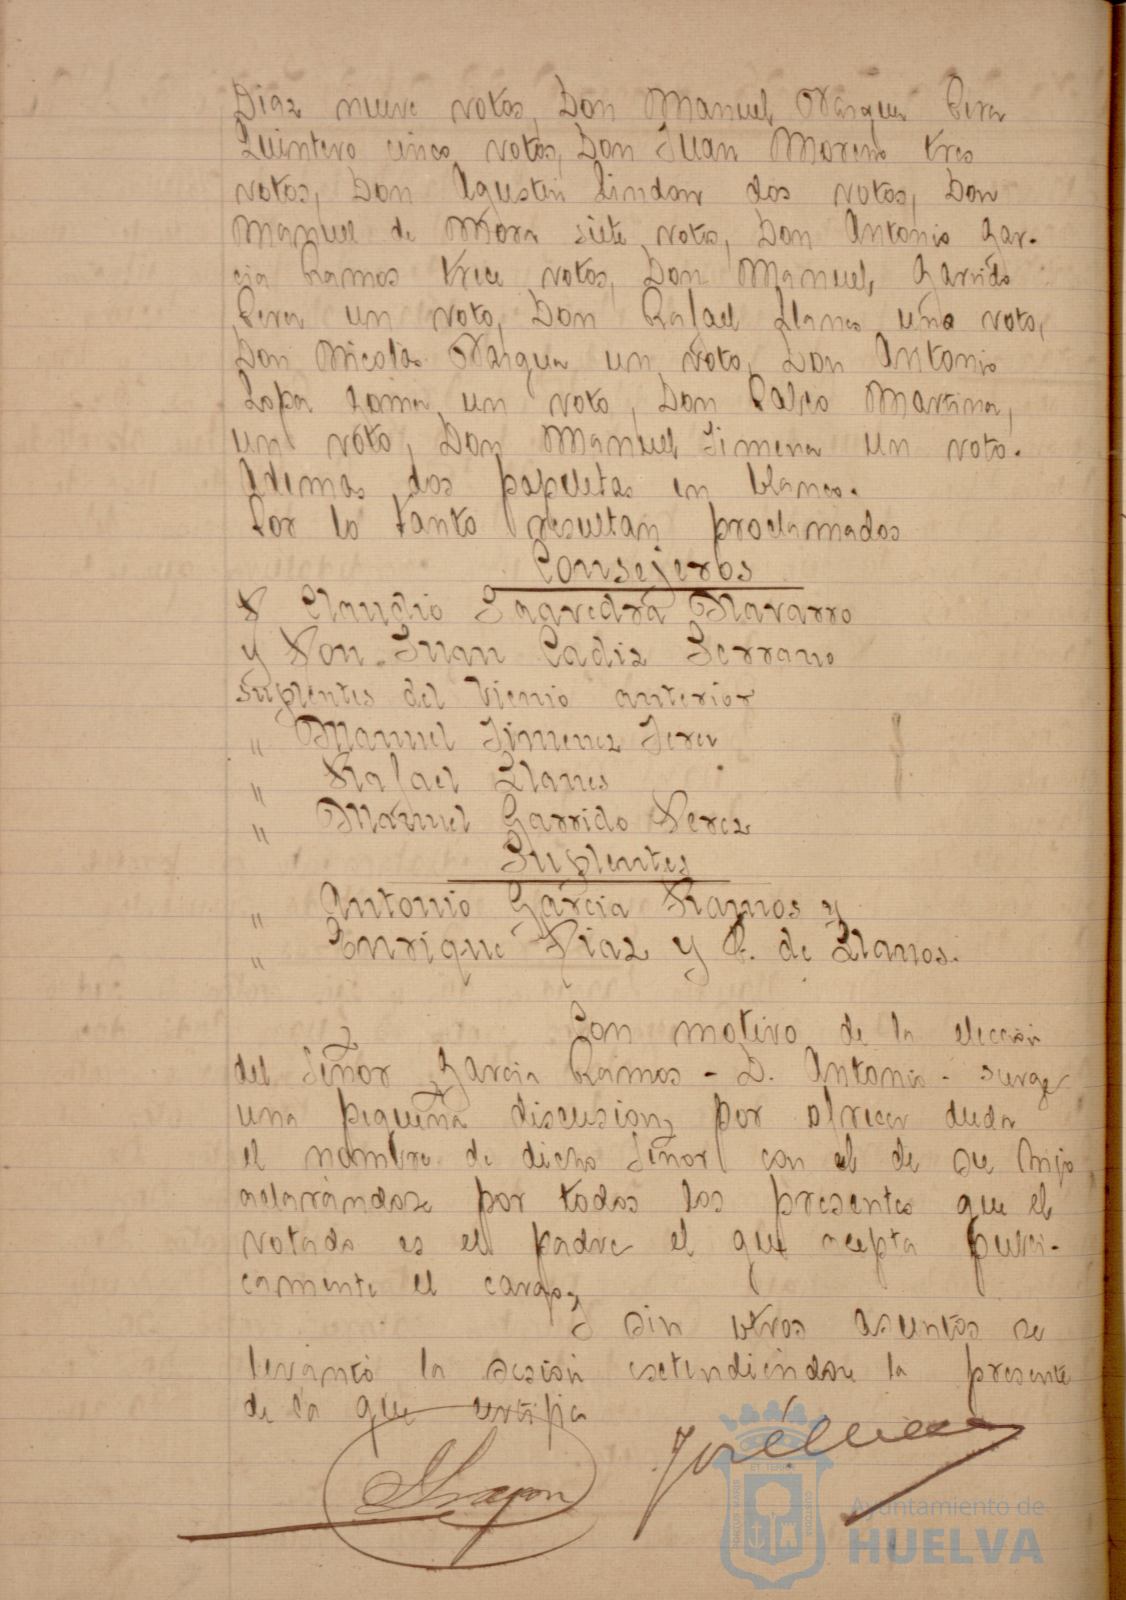 Diaz nueve votos, Don Manuel Vazquez Perez
Quintero cinco votos, Don Juan Moreno tres
votos, Don Agustin Lindon dos votos, Don
Manuel de Mora siete votos, Don Antonio Gar-
cia Ramos trece votos, Don Manuel Garrido
Perez un voto, Don Rafael Llanes uno voto,
Don Nicolás Vazquez un voto, Don Antonio
Lopez un voto, Don Pablo Martinez,
un voto, Don Manuel Jimenez un voto.
Ademas dos papeletas en blanco.
Por lo tanto resultan proclamados
Consejeros
D Claudio Saavedra Navarro
y Don Juan Cadiz Serrano
Suplentes del vienio anterior
" Manuel Jimenez Jerez
" Rafael Llanes
" Manuel Garrido Perez
Suplentes
" Antonio Garcia Ramos y
" Enrique Diaz y F. de Llanos.
Con motivo de la elección
del Señor Garcia Ramos - D. Antonio - surge
una pequeña discusion, por ofrecer duda
el nombre de dicho Señor con el de su hijo
aclarándose por todos los presentes que el
votado es el padre el que acepta publi-
camente el cargo,
Y sin otros asuntos se
levantó la sesión extendiéndose la presente
de la que certifica
Aragon
ET TERRAE
PORTUS MARIS
CUSTODIA
Ayuntamiento de
HUELVA